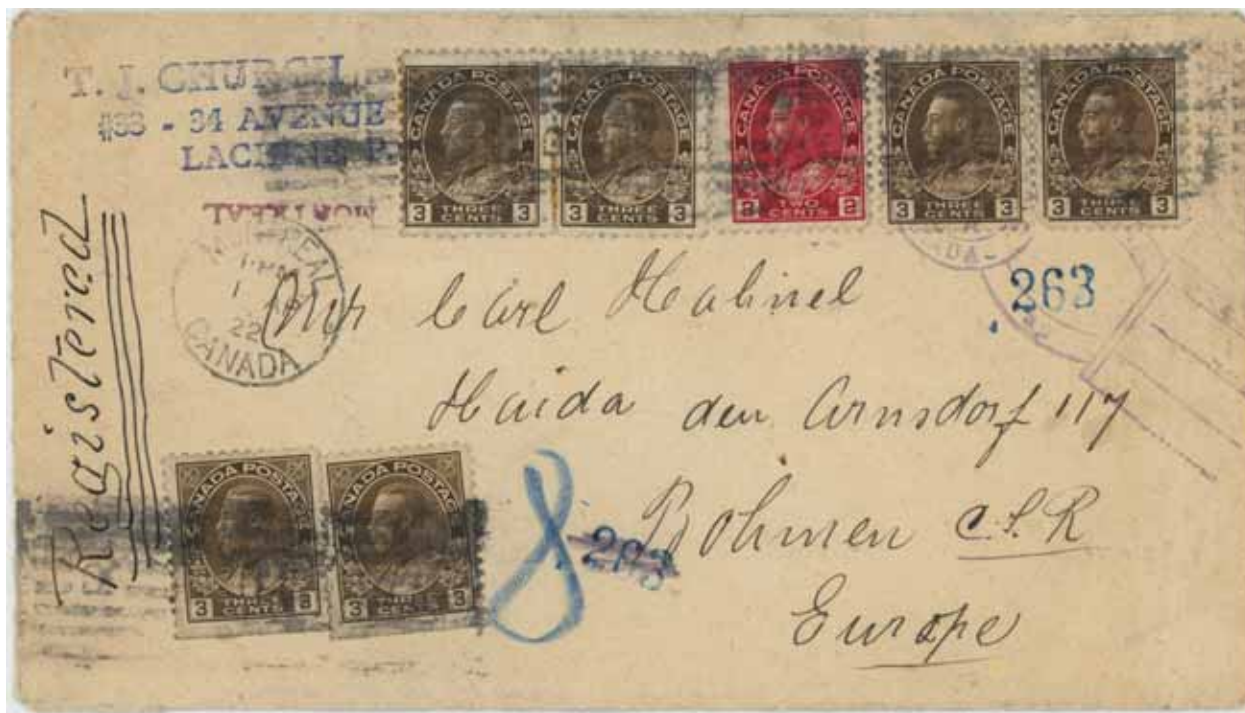 T. J. CHURCH
#33 - 34 AVENUE
LACHINE P.
MONTREAL
CANADA POSTAGE
3 THREE CENTS 3
CANADA POSTAGE
3 THREE CENTS 3
CANADA POSTAGE
2 TWO CENTS 2
CANADA POSTAGE
3 THREE CENTS 3
CANADA POSTAGE
3 THREE CENTS 3
Registered
MONTREAL
1
22
CANADA
263
Mr Carl
Haida den Arnsdorf 117
Bohmen C.S.R
Europe
CANADA POSTAGE
3 THREE CENTS 3
CANADA POSTAGE
3 THREE CENTS 3
8